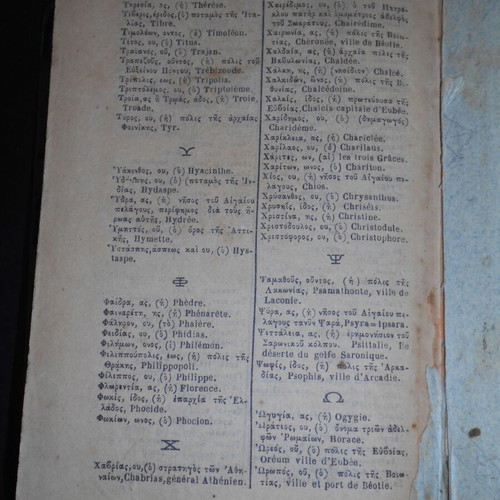 Τηρεσία, ας, (ἡ) Thérèse.
Τίβερις, έριδος, (ὁ) ποταμὸς τῆς Ἰτα-
λίας, Tibre.
Τιμολέων, οντος, (ὁ) Timoléon.
Τίτος, ου, (ὁ) Titus.
Τραϊανὸς, οῦ, (ὁ) Trajan.
Τραπεζοῦς, οῦντος, (ἡ) πόλις τοῦ
Εὐξείνου Πόντου, Trébizonde.
Τρίπολις, εως, (ἡ) Tripolis.
Τριπτόλεμος, ου, (ὁ) Triptolème.
Τροία, ας, ἢ Τρωὰς, άδος, (ἡ) Troie,
Troade.
Τύρος, ου, (ἡ) πόλις τῆς ἀρχαίας
Φοινίκης, Tyr.
Υ
Ὑάκινθος, ου, (ὁ) Hyacinthe.
Ὑδάσπης, ου, (ὁ) ποταμὸς τῆς Ἰν-
δίας, Hydaspe.
Ὕδρα, ας, (ἡ) νῆσος τοῦ Αἰγαίου
πελάγους, περίφημος διὰ τοὺς ἥ-
ρωας αὐτῆς, Hydrée.
Ὑμηττὸς, οῦ, (ὁ) ὄρος τῆς Ἀττι-
κῆς, Hymette.
Ὑστάσπης, άσπεως καὶ ου, (ὁ) Hys-
taspe.
Φ
Φαίδρα, ας, (ἡ) Phèdre.
Φαιναρέτη, ης, (ἡ) Phénarète.
Φάληρον, ου, (τὸ) Phalère.
Φειδίας, ου, (ὁ) Phidias.
Φιλήμων, ονος, (ὁ) Philémon.
Φιλιππούπολις, εως, (ἡ) πόλις τῆς
Θράκης, Philippopoli.
Φίλιππος, ου, (ὁ) Philippe.
Φλωρεντία, ας, (ἡ) Florence.
Φωκὶς, ίδος, (ἡ) ἐπαρχία τῆς Ἑλ-
λάδος, Phocide.
Φωκίων, ωνος, (ὁ) Phocion.
Χ
Χαβρίας, ου, (ὁ) στρατηγὸς τῶν Ἀθη-
ναίων, Chabrias, général Athénien.
Χαιρέδημος, ου, (ὁ) τοῦ
πατρὸς καὶ ὁμομήτριος ἀδελφὸς
τοῦ Σωκράτους, Chaïrédème.
Χαιρώνεια, ας, (ἡ) πόλις τῆς Βοιω-
τίας, Chéronée, ville de Béotie.
Χαλδαία, ας, (ἡ) ἀρχαία πόλις τῆς
Βαβυλωνίας, Chaldée.
Χάλκη, ης, (ἡ) (νησίδιον) Chalcé.
Χαλκηδὼν, όνος, (ἡ) πόλις τῆς Βι-
θυνίας, Chalcédoine.
Χαλκὶς, ίδος, (ἡ) πρωτεύουσα τῆς
Εὐβοίας, Chalcis capitale d'Eubée.
Χαρίδημος, ου, (ὁ) (δημαγωγὸς)
Charidème.
Χαρίκλεια, ας, (ἡ) Chariclée.
Χαρίλαος, ου, (ὁ) Charilaus.
Χάριτες, ων, (αἱ) les trois Grâces.
Χαρίτων, ωνος, (ὁ) Chariton.
Χίος, ου, (ἡ) νῆσος τοῦ Αἰγαίου πε-
λάγους, Chios.
Χρύσανθος, ου, (ὁ) Chrysanthus.
Χρυσηῒς, ίδος, (ἡ) Chriséis.
Χριστίνα, ης, (ἡ) Christine.
Χριστόδουλος, ου, (ὁ) Christodule.
Χριστόφορος, ου, (ὁ) Christophore.
Ψ
Ψαμαθοῦς, οῦντος, (ἡ) πόλις τῆς
Λακωνίας, Psamathonte, ville de
Laconie.
Ψύρα, ας, (ἡ) νῆσος τοῦ Αἰγαίου πε-
λάγους τανῦν Ψαρὰ, Psyra = Ipsara.
Ψυττάλεια, ας, (ἡ) ἐρημονήσιον τοῦ
Σαρωνικοῦ κόλπου, Psittalie, île
déserte du golfe Saronique.
Ψωφὶς, ίδος, (ἡ) πόλις τῆς Ἀρκα-
δίας, Psophis, ville d'Arcadie.
Ω
Ὠγυγία, ας, (ἡ) Ogygie.
Ὡράτιος, ου, (ὁ) ὄνομα τριῶν ἀδελ-
φῶν Ῥωμαίων, Horace.
Ὠρεὸς, οῦ, (ὁ) πόλις τῆς Εὐβοίας,
Oréum ville d'Eubée.
Ὠρωπὸς, οῦ, (ὁ) πόλις τῆς Βοιω-
τίας, ville et port de Béotie.